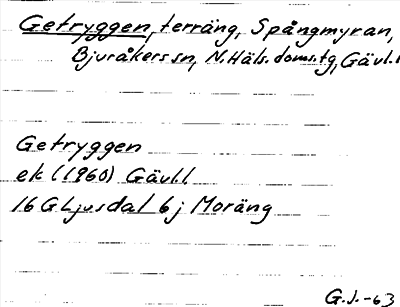 Getryggen, terräng, Spångmyran,
Bjuråkers sn, N. Häls. doms. tg, Gävl. l
Getryggen
ek (1960) Gävl. l.
16 G Ljusdal 6 j Moräng
G. J. -63